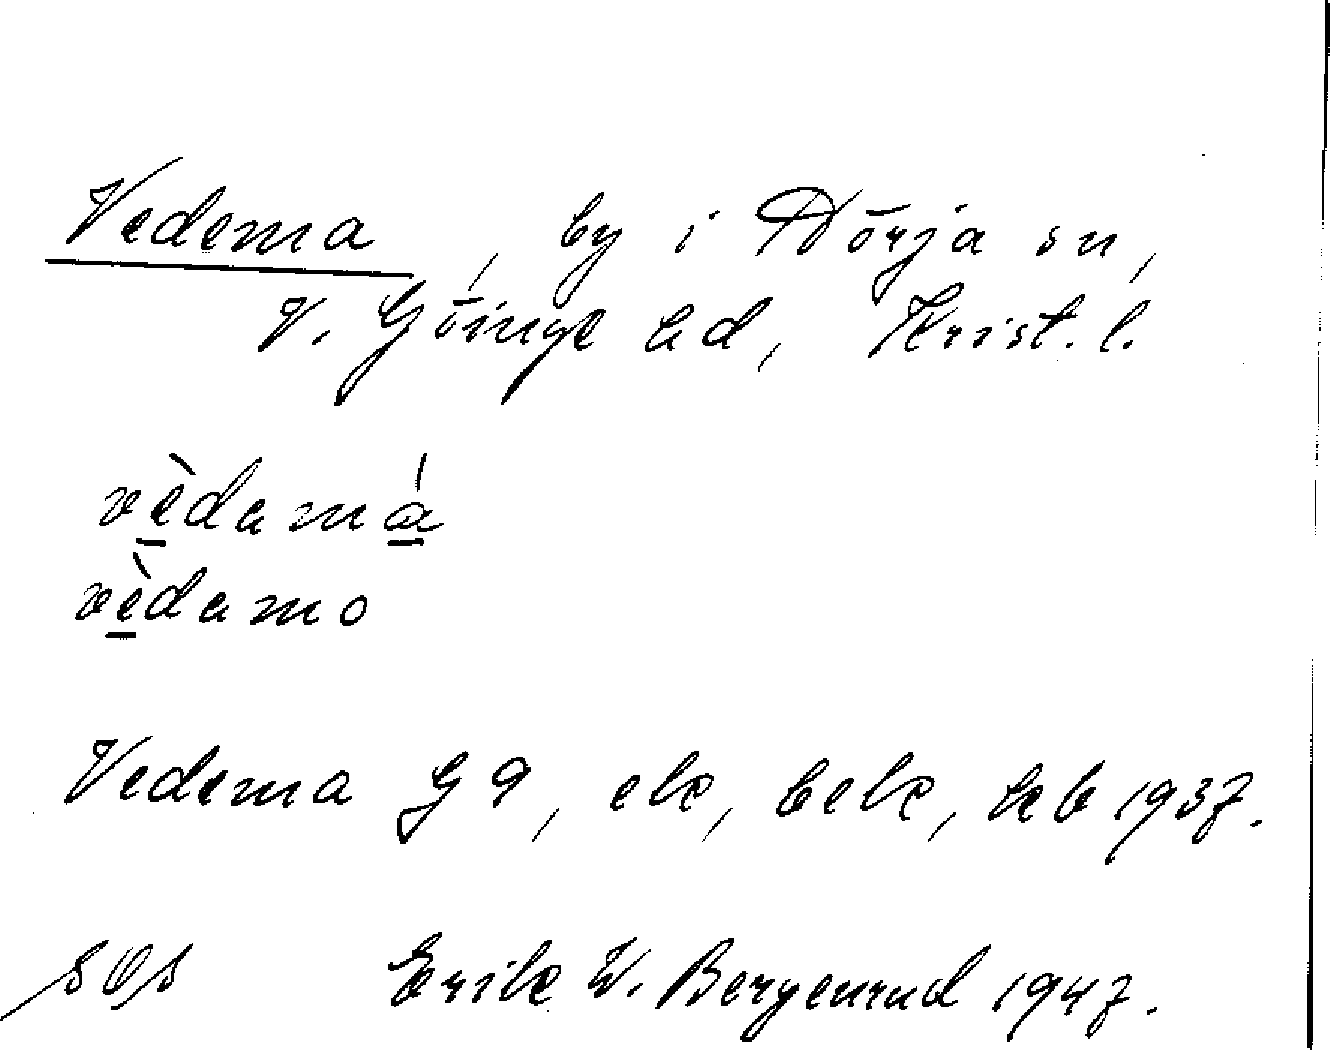 Vedema, by i Nörja sn,
V. Göinge hd, Krist. l.
vèdamá
vèdamo
Vedema G 9, ek, bek, hkb 1937.
SOS Erik W. Bergenrud 1947.